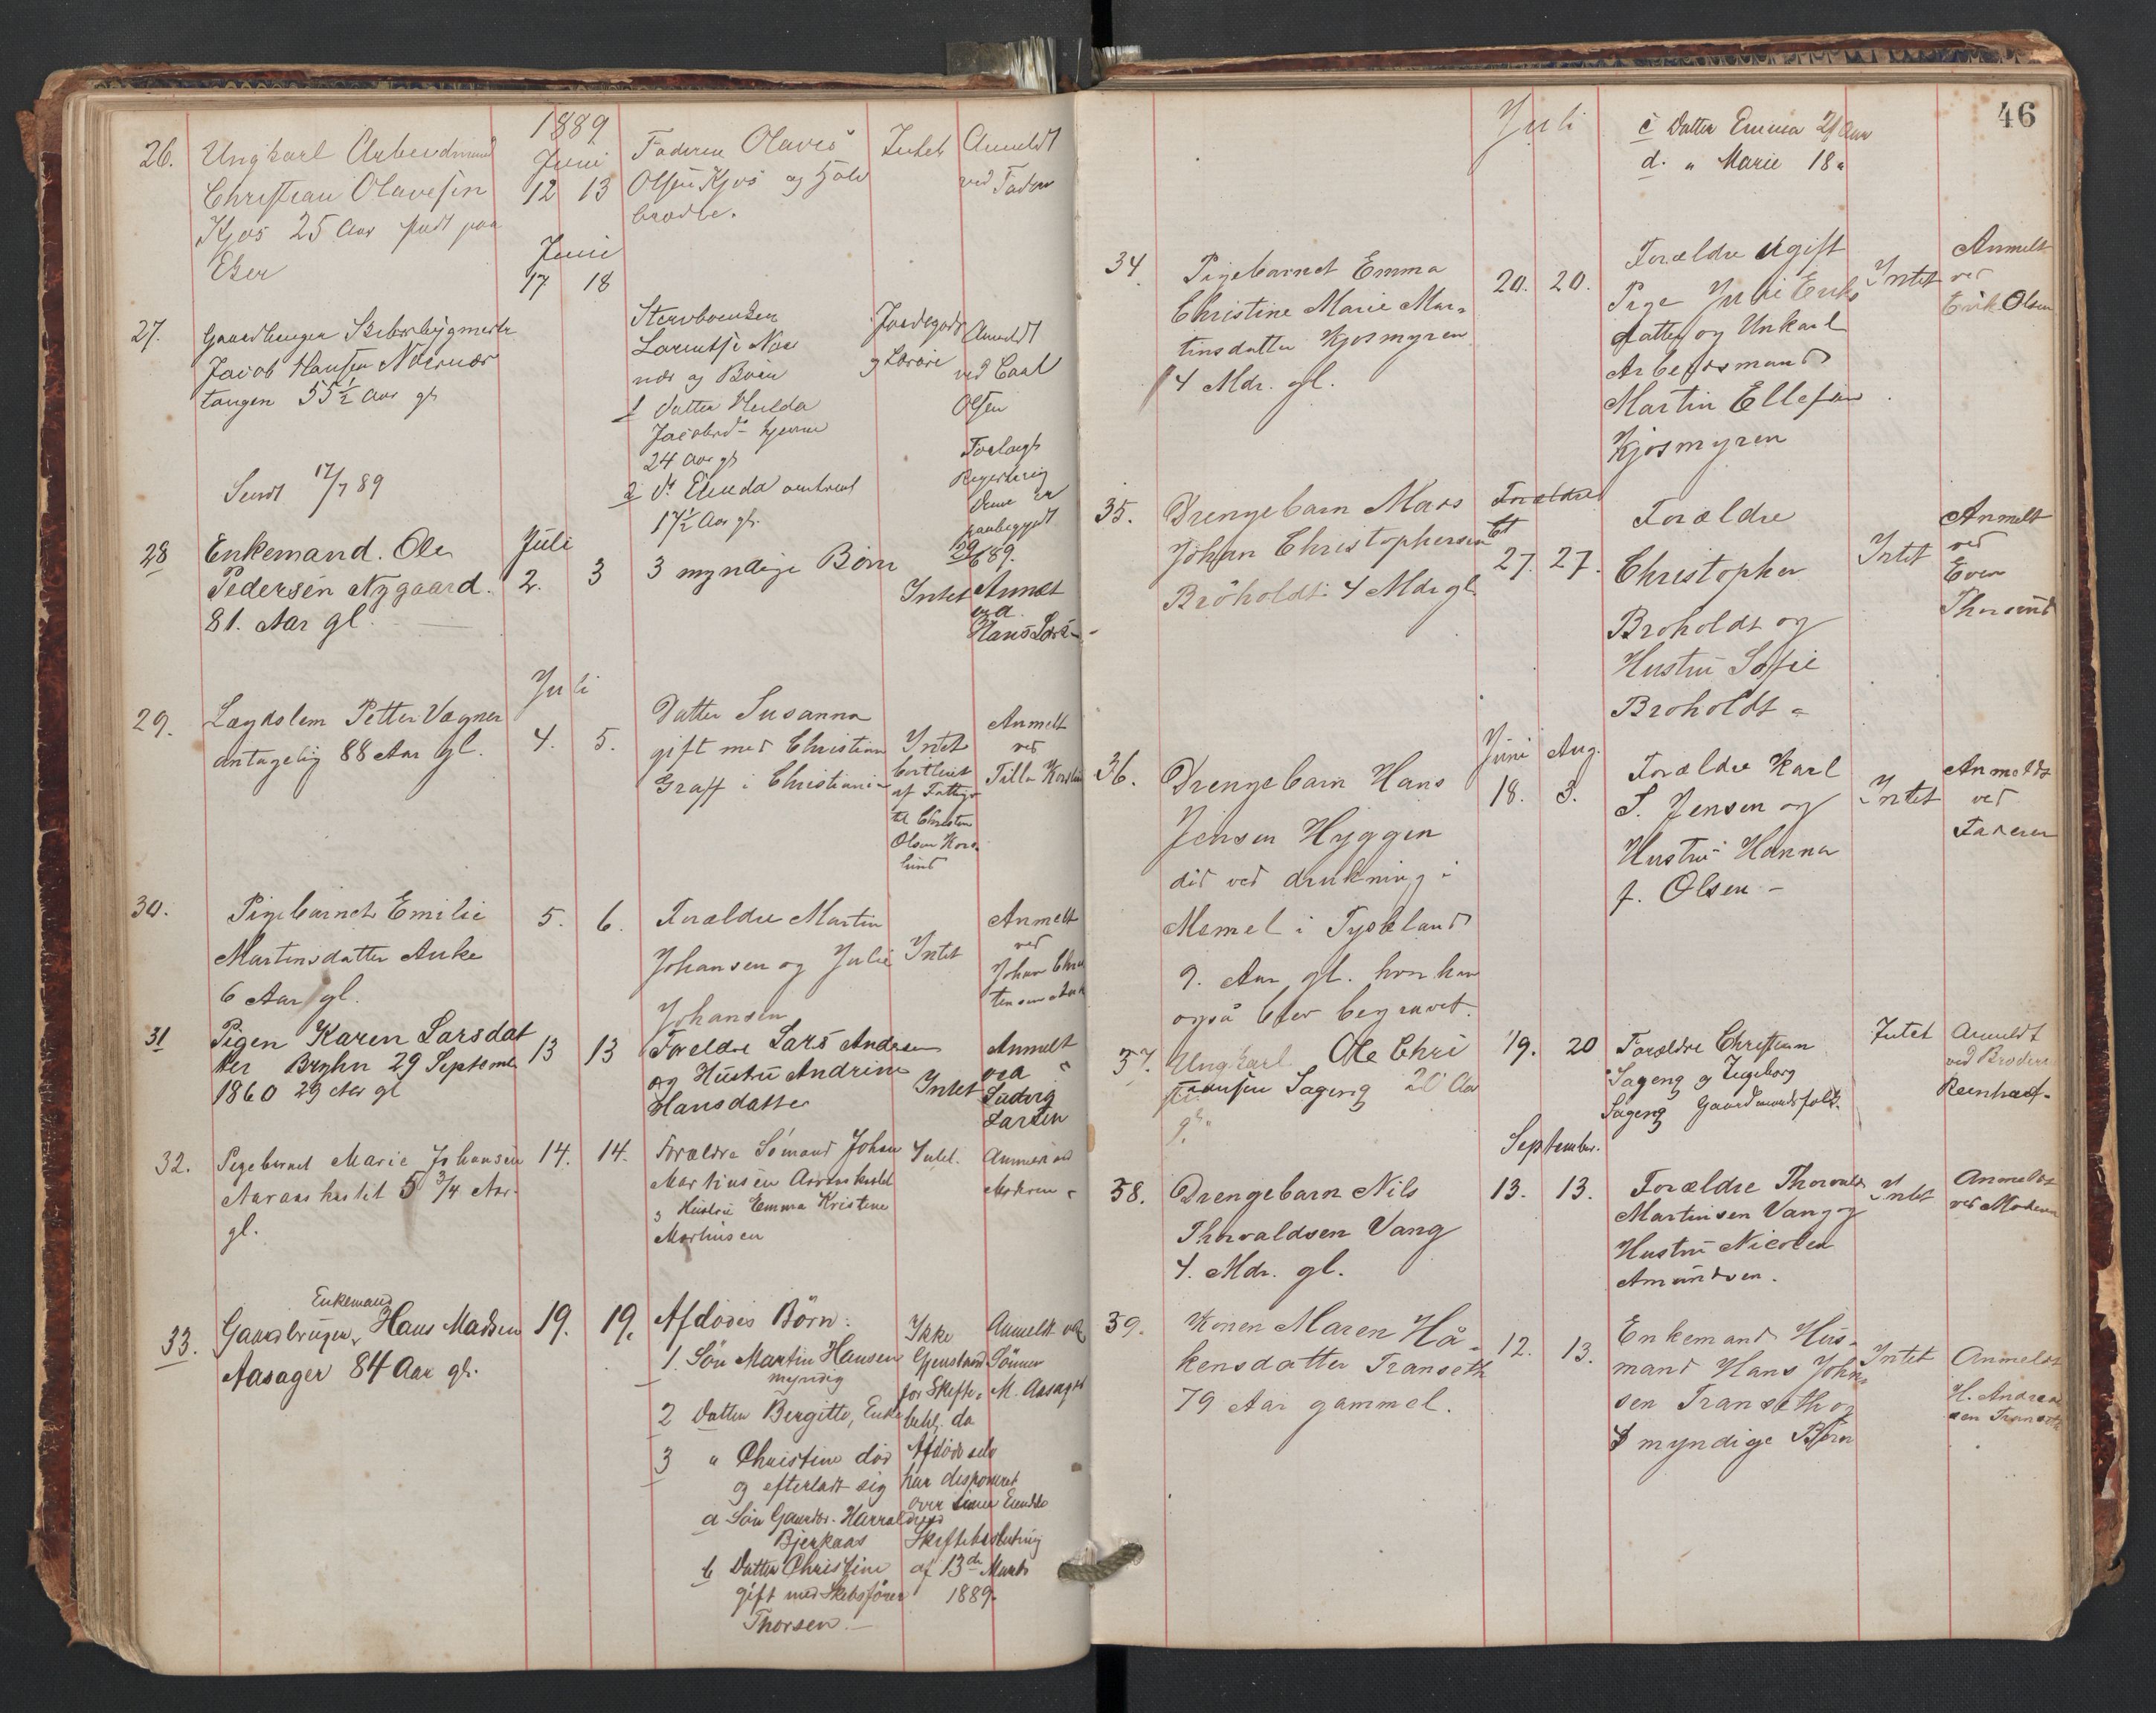 1889
26. Ungkarl Arbeidsmand
Christian Olavesen
Kjos 25 Aar født paa
Eker
Juni
12 13
Faderen Olaves
Olsen Kjos og
Intet
Anmeldt
ved Faderen
Juni
17 18
27. Gaardbruger Skibsbygmester
Jacob Hansen Nærsnæs
tangen 55 1/2 Aar gl
Sendt 17/7 89
Stervboenken
og Børn
1 Datter Hilda
Jacobsd hjemme
24 Aar gl
2 Dr
17 1/2 Aar gl.
Jordegods
og Løsøre
Anmeldt
ved Carl
Olsen
Forlangt
Registrering
Denne er
paabegyndt
29/6 89.
28 Enkemand. Ole
Pedersen Nygaard.
81. Aar gl.
Juli
2. 3
3 myndige Børn
Intet
Anmelt
ved
Hans Lars
Juli
29. Lægdslem Petter Vagner
antagelig 88 Aar gl.
4. 5.
Datter Susanna
gift med Christian
Graff i Christiania
Intet
af Fattigv
til Christen
Olsen Kors
lund
Anmelt
ved
30. Pigebarnet Emilie
Martinsdatter Auke
6 Aar gl.
5. 6.
Forældre Martin
Johansen og Julie
Johansen
Intet
Anmelt
ved
Johan
31 Pigen Karen Larsdat
ter Bryhn 29 Septembe
1860 29 Aar gl
13 13
Foreldre Lars Andersen
og Hustru Andrine
Hansdatter
Intet
Anmelt
ved
Ludvig
Larsen
32. Pigebarnet Marie Johansen
5 3/4 Aar
gl.
14. 14.
Forældre Sømand Johan
Martinsen
Hustru Emma Kristine
Martinsen
Intet.
Anmeldt ved
Moderen
Enkemand
33. Gaardbruger Hans Madsen
Aasager 84 Aar gl.
19. 19.
Afdødes Børn:
1. Søn Martin Hansen
myndig
2 Datter Bergitte, Enke
3 " Christine død
og efterladt sig
a Søn Gaardbr. Harrald
Bjerkaas
b Datter Christine
gift med Skibsfører
Thorsen.
Ikke
Gjenstand
for Skifte
behl. da
Afdøde selv
har disponeret
over sine Eiendele
Skiftebeslutning
af 13de Marts
1889.
Anmeldt ved
Sønnen
M. Aasager
46
Juli
c Datter Emma 21 Aar
d. " Marie 18 "
34 Pigebarnet Emma
Christine Marie Mar-
tinsdatter Kjosmyren
4 Mdr. gl.
20. 20.
Forældre Ugift
Pige Juli Eriks
datter og Unkarl
Arbeidsmand
Martin Ellefsen
Kjosmyren
Intet
Anmelt
ved
Erik Olsen
35. Drengebarn Mars
Johan Christophersen
Bröholdt 4 Mdr gl.
27. 27.
Forældre
Christopher
Broholdt og
Hustru Sofie
Broholdt
Intet
Anmelt
ved
Even
Juni Aug.
36. Drengebarn Hans
Jensen Hyggen
död ved drukning i
Memel i Tyskland
9. Aar gl. hvor han
også blev begravet.
18. 3.
Forældre Karl
S. Jensen og
Hustru Hanna
f. Olsen
Intet
Anmeldt
ved
Faderen
37. Ungkarl Ole Chri
stiansen Sageng 20 Aar
gl.
19. 20
Forældre Christian
Sageng og Ingeborg
Sageng Gaardmandsfolk.
Intet
Anmeldt
ved Broderen
Reinhard.
September.
38. Drengebarn Nils
Thorvaldsen Vang
4. Mdr. gl.
13. 13.
Forældre Thorvald
Martinsen Vang og
Hustru Nicolea
Amundsen.
Intet
Anmeldt
ved Moderen
39. Konen Maren Hå-
kensdatter Transeth
79 Aar gammel.
12. 13.
Enkemand Hus-
mand Hans John-
sen Transeth og
myndige Børn
Intet
Anmeldt
H. Andrea
sen Transeth